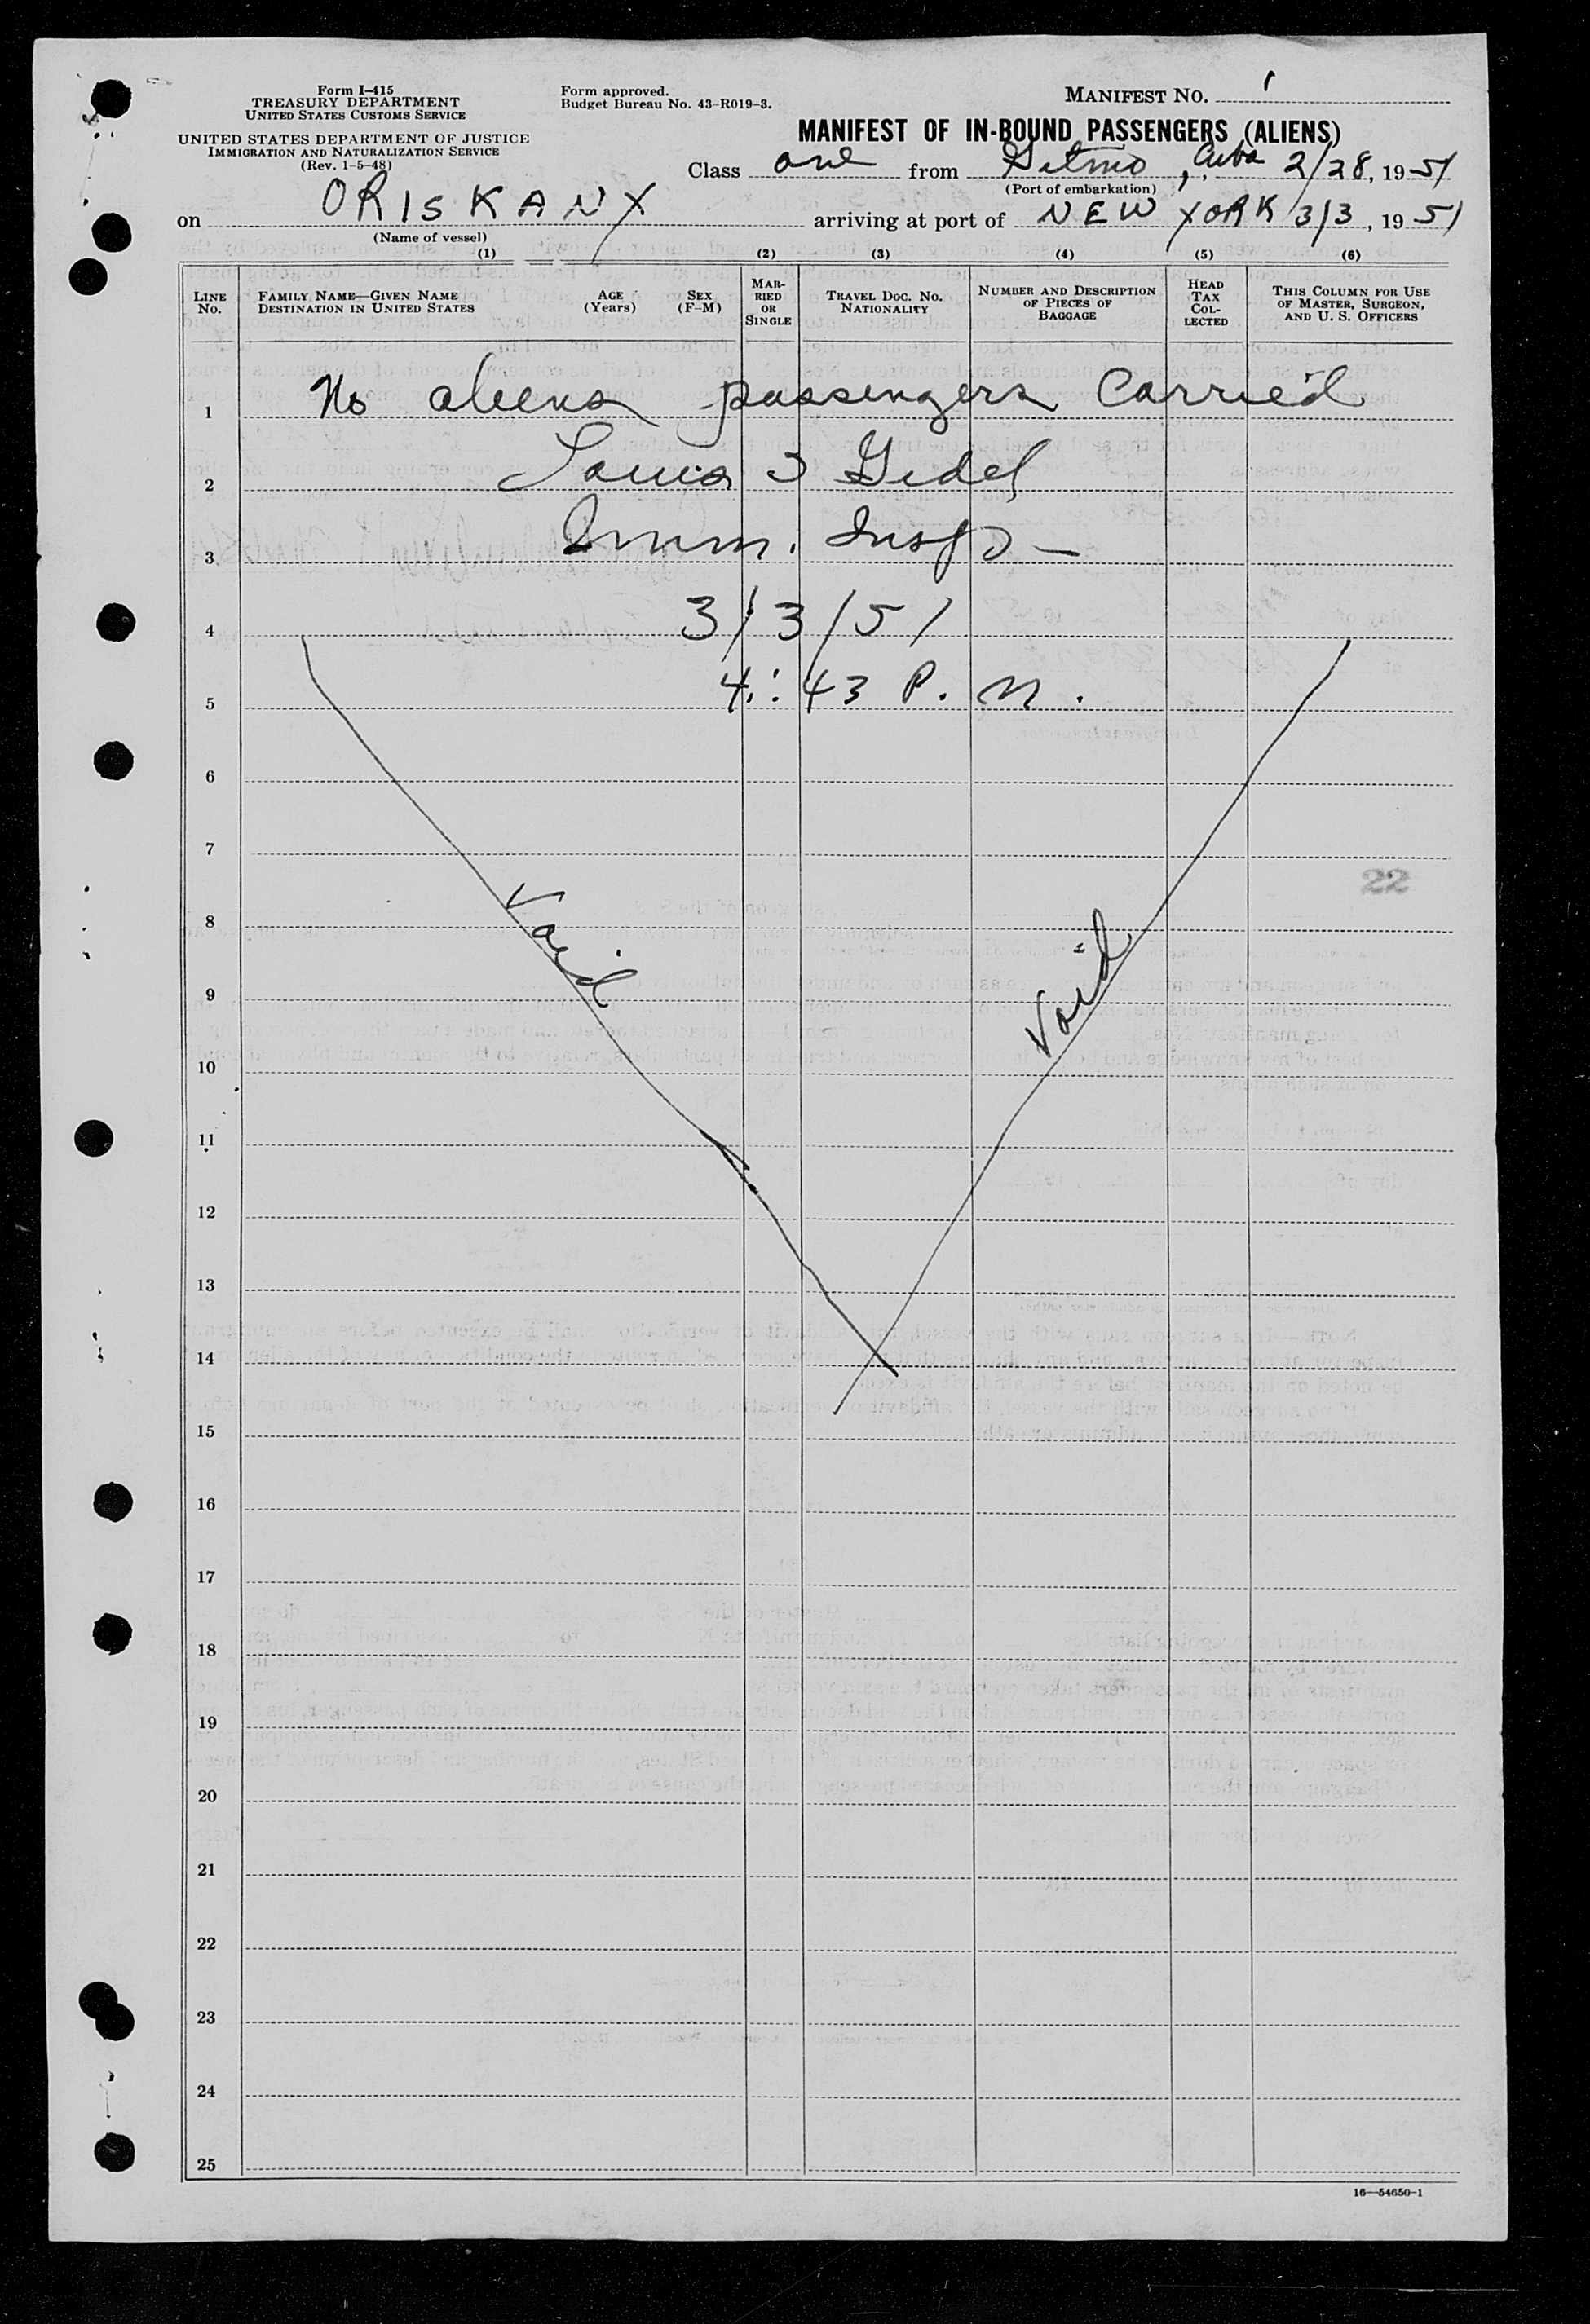 Form I-415
TREASURY DEPARTMENT
UNITED STATES CUSTOMS SERVICE
UNITED STATES DEPARTMENT OF JUSTICE
IMMIGRATION AND NATURALIZATION SERVICE
(Rev. 1-5-48)
Form approved.
Budget Bureau No. 43-R019-3.
MANIFEST NO. 1
MANIFEST OF IN-BOUND PASSENGERS (ALIENS)
Class one from Gitmo, Cuba 2/28, 1951
(Port of embarkation)
on ORISKANY arriving at port of NEW YORK 3/3, 1951
(Name of vessel)
(1) (2) (3) (4) (5) (6)
LINE No.
FAMILY NAME—GIVEN NAME
DESTINATION IN UNITED STATES
AGE (Years)
SEX (F-M)
MARRIED OR SINGLE
TRAVEL DOC. NO.
NATIONALITY
NUMBER AND DESCRIPTION OF PIECES OF BAGGAGE
HEAD TAX COLLECTED
THIS COLUMN FOR USE OF MASTER, SURGEON, AND U. S. OFFICERS
1 No aliens passengers carried
2 Louis
3 Imm. Insp
4 3/3/51
5 4:43 P. M.
6
7
22
8
Void Void
9
10
11
12
13
14
15
16
17
18
19
20
21
22
23
24
25
16—54650-1